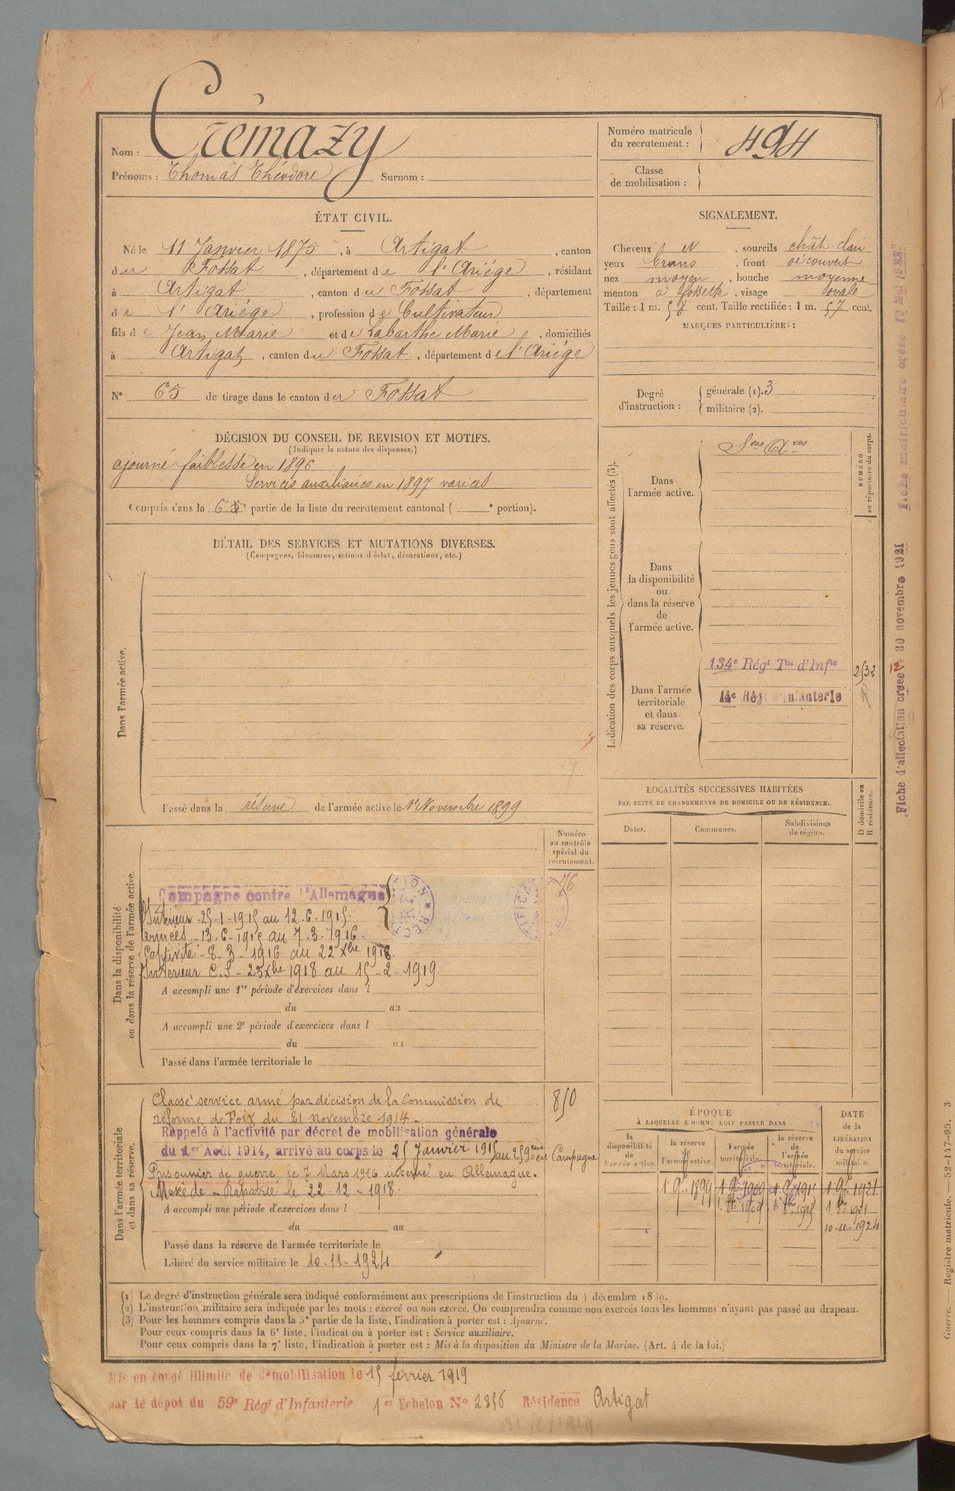 Nom : Crémazy
Prénoms : Thomas Théodore Surnom :
Numéro matricule du recrutement : 494
Classe de mobilisation :
ÉTAT CIVIL.
Né le 11 Janvier 1875, à Artigat, canton
du Fossat, département de l'Ariége, résidant
à Artigat, canton du Fossat, département
de l'Ariége, profession de Cultivateur
fils de Jean Marie et de Labarthe Marie, domiciliés
à Artigat, canton du Fossat, département de l'Ariége
N° 65 de tirage dans le canton du Fossat
SIGNALEMENT.
Cheveux et sourcils chât clair
yeux bruns, front découvert
nez moyen, bouche moyenne
menton à fossette, visage ovale
Taille : 1 m. 58 cent. Taille rectifiée : 1 m. 57 cent.
MARQUES PARTICULIÈRES :
Degré d'instruction : générale (1). 3
militaire (2).
DÉCISION DU CONSEIL DE REVISION ET MOTIFS.
(Indiquer la nature des dispenses.)
ajourné faiblesse en 1896
Services auxiliaires en 1897 varices
Compris dans la 6e partie de la liste du recrutement cantonal ( e portion).
DÉTAIL DES SERVICES ET MUTATIONS DIVERSES.
(Campagnes, blessures, actions d'éclat, décorations, etc.)
Dans l'armée active.
Passé dans la réserve de l'armée active le 1er Novembre 1899
Indication des corps auxquels les jeunes gens sont affectés (3).
Dans l'armée active.
Sces Axres
NUMÉRO au répertoire du corps.
Dans la disponibilité ou dans la réserve de l'armée active.
Dans l'armée territoriale et dans sa réserve.
134e Régt Tal d'Infie
14e Régt d'Infanterie
2532
R
LOCALITÉS SUCCESSIVES HABITÉES
PAR SUITE DE CHANGEMENTS DE DOMICILE OU DE RÉSIDENCE.
Dates.
Communes.
Subdivisions de région.
D domicile ou R résidence.
Numéro au contrôle spécial du recrutement.
76
Dans la disponibilité ou dans la réserve de l'armée active.
Campagne contre l'Allemagne
Intérieur - 25-1-1915 au 12-6-1915
armées - 13-6-1915 au 7-3-1916
Captivité - 8-3-1916 au 22 Xbre 1918
Intérieur C.S - 23 Xbre 1918 au 15-2-1919
A accompli une 1re période d'exercices dans l
du au
A accompli une 2e période d'exercices dans l
du au
Passé dans l'armée territoriale le
Dans l'armée territoriale et dans sa réserve.
Classé service armé par décision de la Commission de
réforme de Foix du 21 novembre 1914 -
Rappelé à l'activité par décret de mobilisation générale
du 1er Août 1914, arrivé au corps le 25 Janvier 1915 au 259eme en Campagne
Prisonnier de guerre le 7 Mars 1916 interné en Allemagne.
Rapatrié le 22-12-1918.
850
A accompli une période d'exercices dans l
du au
Passé dans la réserve de l'armée territoriale le
Libéré du service militaire le 10-11-1924
ÉPOQUE
À LAQUELLE L'HOMME DOIT PASSER DANS
la disponibilité de l'armée active.
la réserve de l'armée active.
l'armée territoriale.
la réserve de l'armée territoriale.
DATE de la LIBÉRATION du service militaire.
1 9bre 1899
1 9bre 1909
1 9bre 1915
1 9bre 1921
10-11-1924
(1) Le degré d'instruction générale sera indiqué conformément aux prescriptions de l'instruction du 4 décembre 1889.
(2) L'instruction militaire sera indiquée par les mots : exercé ou non exercé. On comprendra comme non exercés tous les hommes n'ayant pas passé au drapeau.
(3) Pour les hommes compris dans la 5e partie de la liste, l'indication à porter est : Ajourné.
Pour ceux compris dans la 6e liste, l'indication à porter est : Service auxiliaire.
Pour ceux compris dans la 7e liste, l'indication à porter est : Mis à la disposition du Ministre de la Marine. (Art. 4 de la loi.)
Mis en congé illimité de démobilisation le 15 février 1919
par le dépôt du 59e Régt d'Infanterie 1er Echelon No 2356 Résidence Artigat
Fiche d'affectation créée le 30 novembre 1921
Fiche matriculaire créée
Guerre. — Registre matricule. — 52-147-95. 3